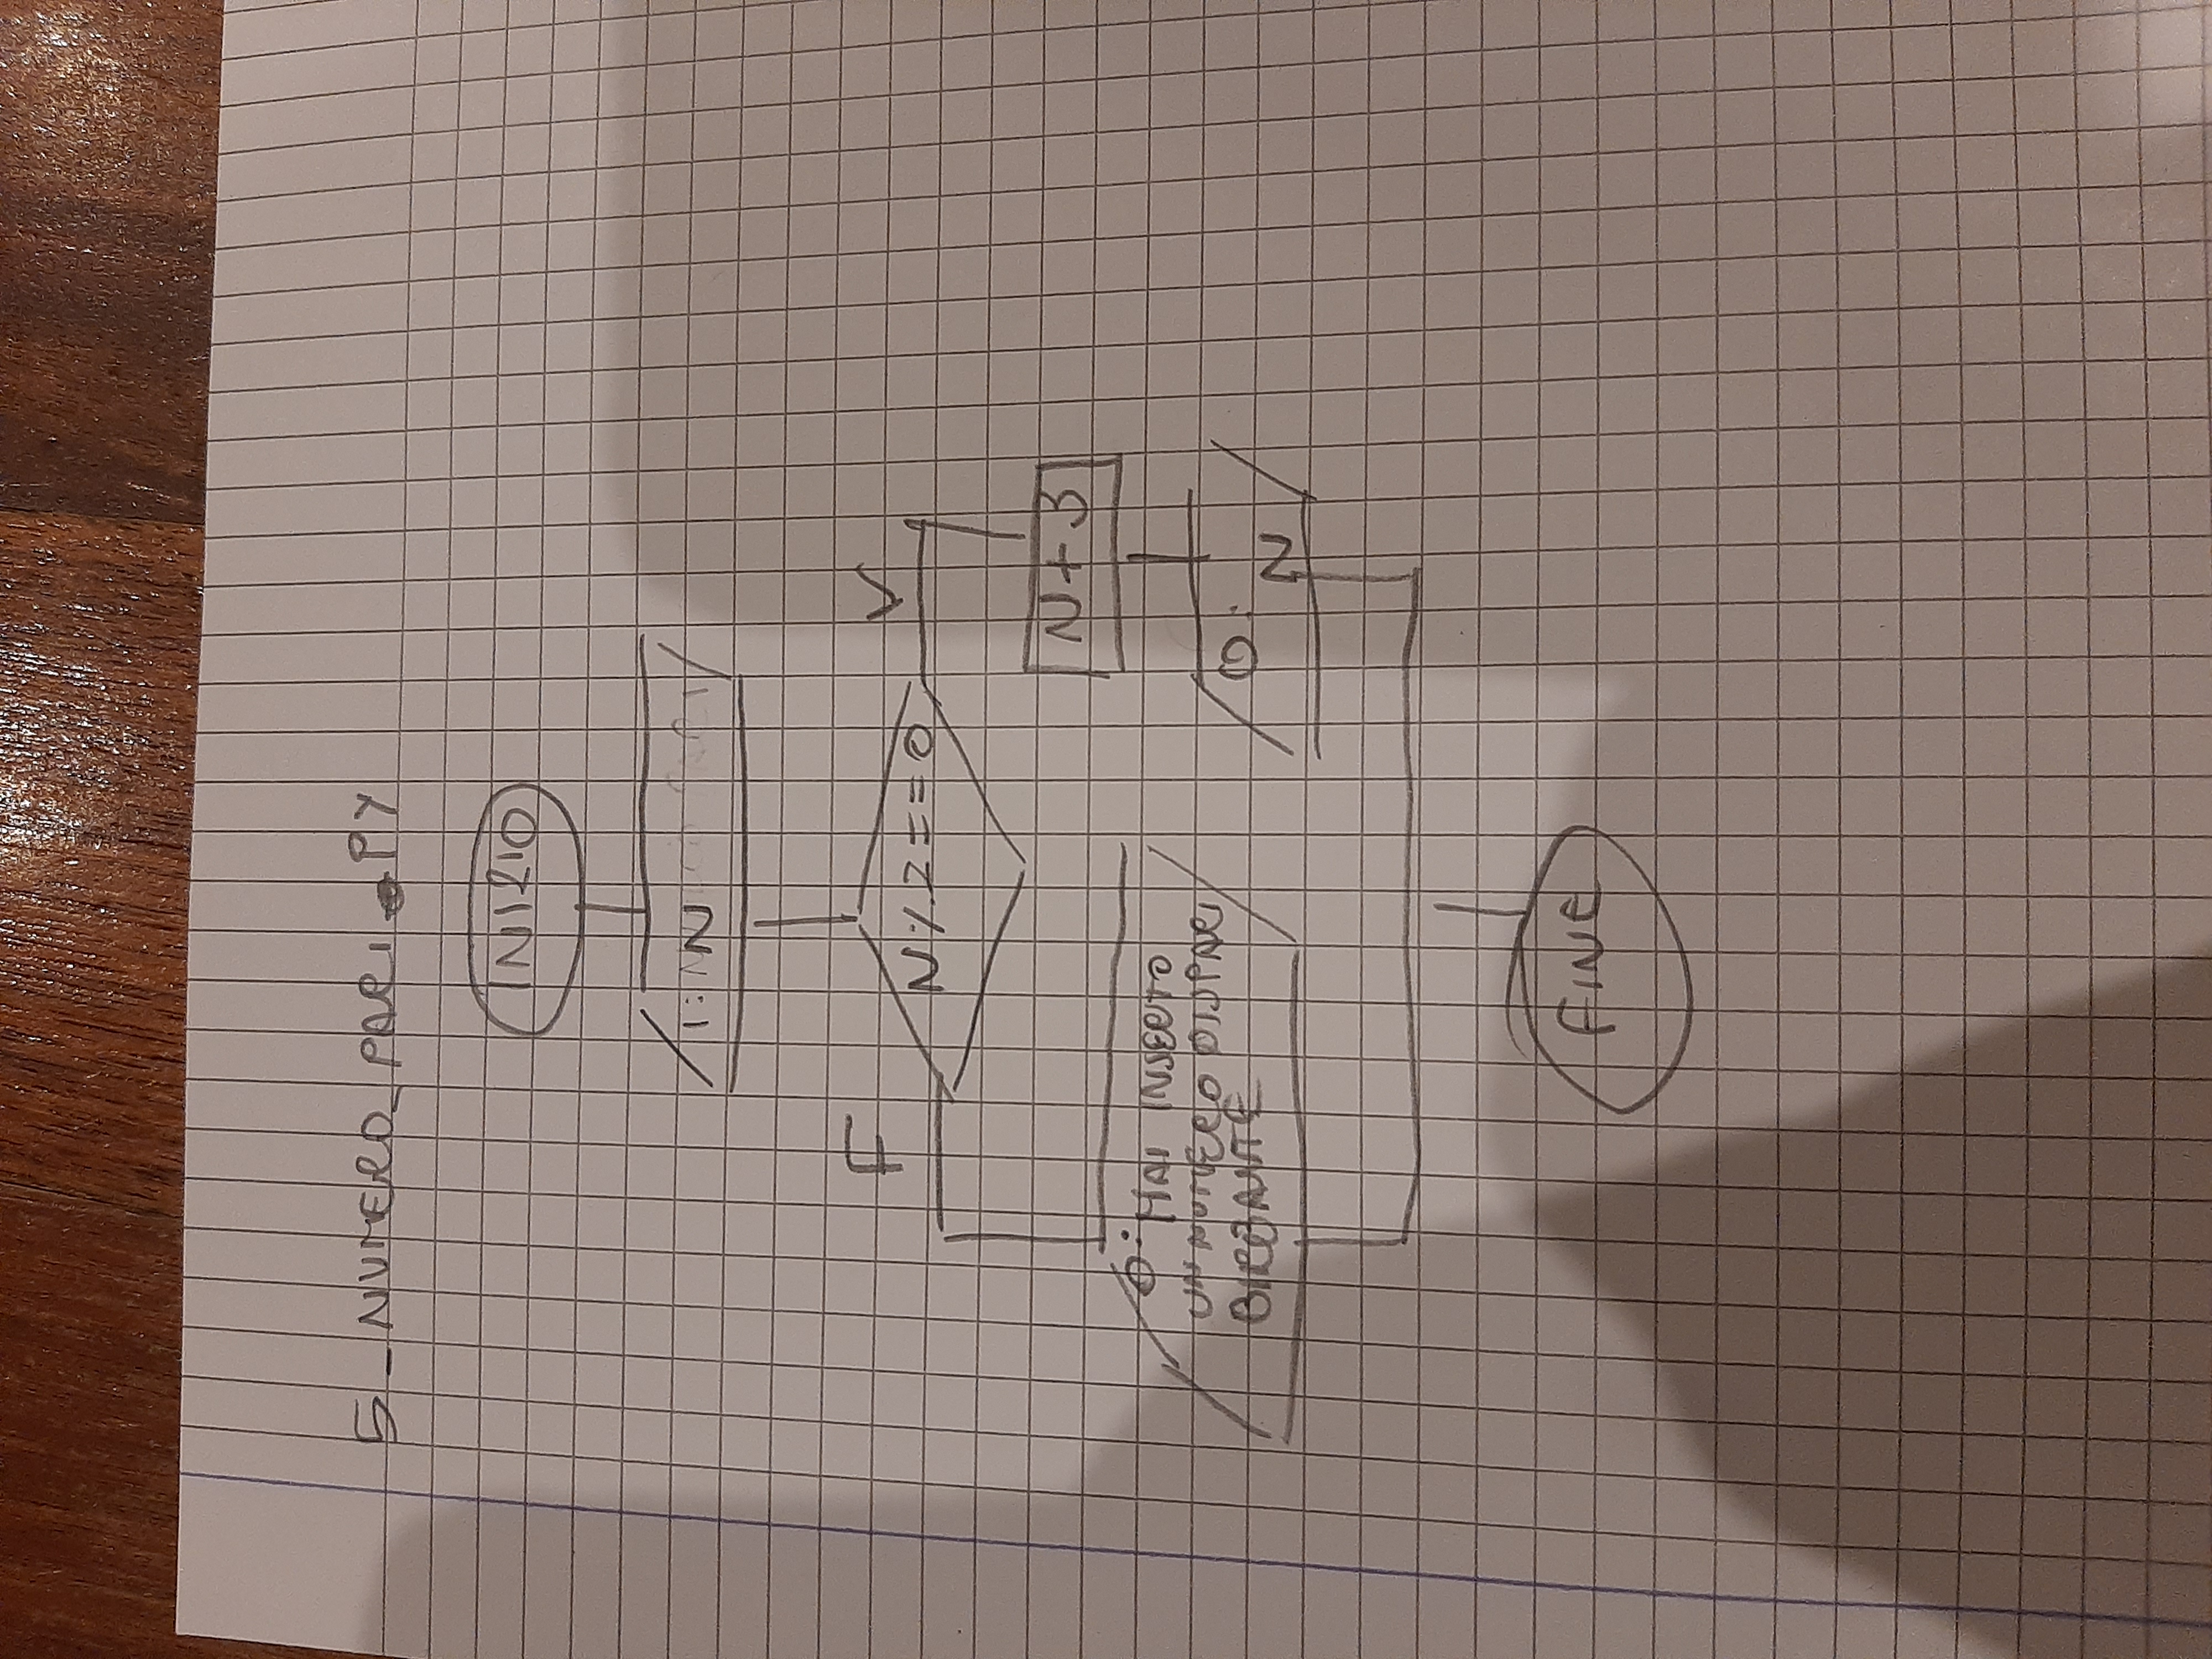 5_NUMERO_PARI.PY
INIZIO
I: N
N%2==0
F
V
N+3
O: HAI INSERITO
UN NUMERO DISPARI
BIRBANTE
O: N
FINE